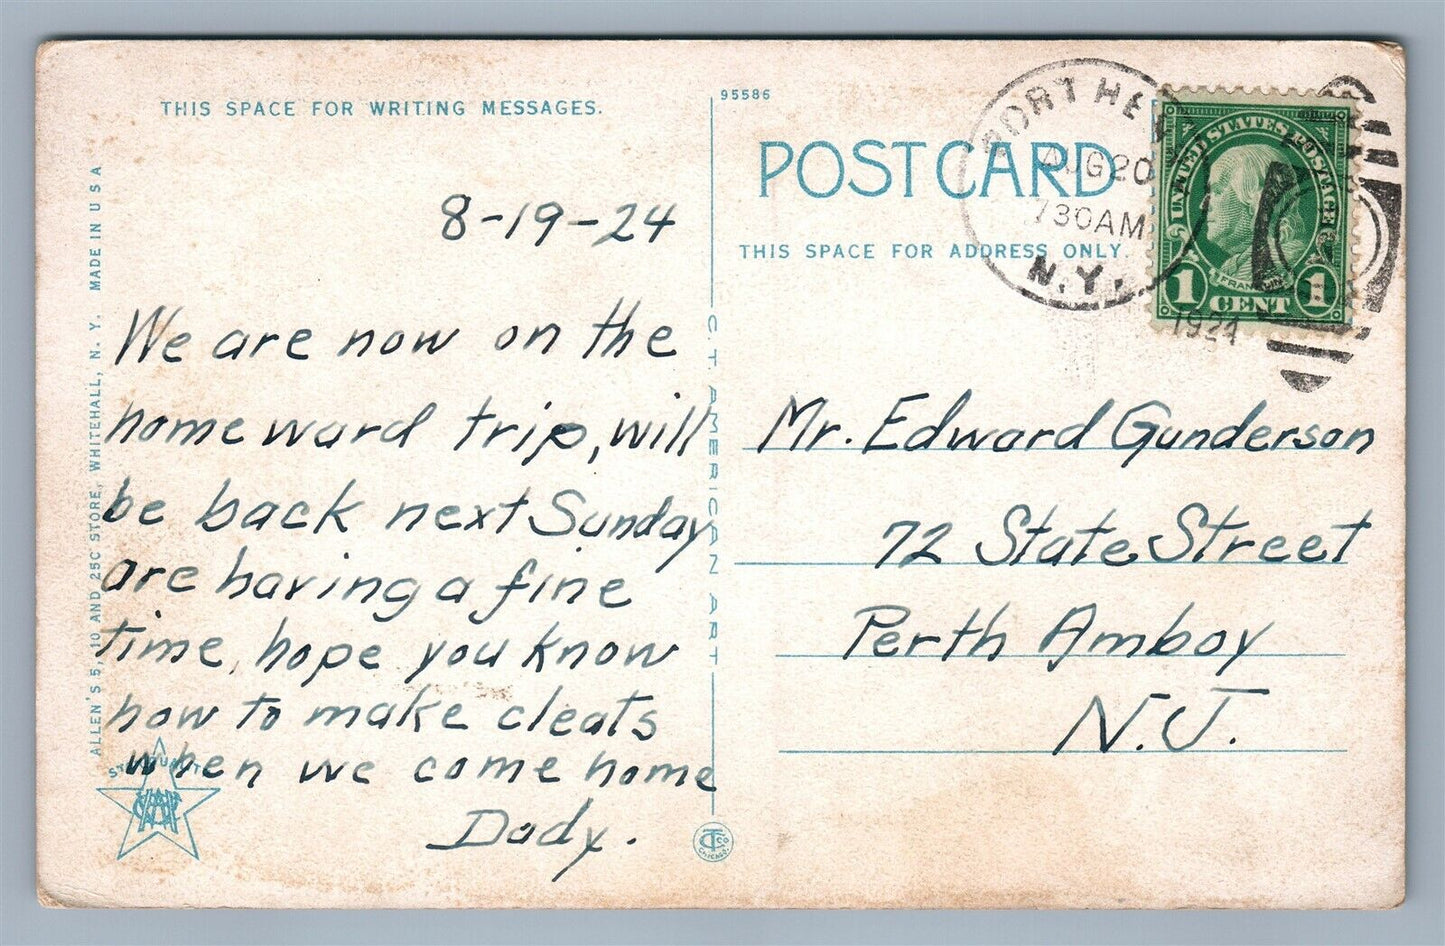 THIS SPACE FOR WRITING MESSAGES.
95586
POST CARD
THIS SPACE FOR ADDRESS ONLY.
PORT HE
AUG 20
730AM
N.Y.
1924
UNITED STATES POSTAGE
FRANKLIN
1 CENT 1
8-19-24
We are now on the
homeward trip, will
be back next Sunday
are having a fine
time, hope you know
how to make cleats
when we come home
Dady.
Mr. Edward Gunderson
72 State Street
Perth Amboy
N.J.
ALLEN'S 5, 10 AND 25C STORE, WHITEHALL, N. Y. MADE IN U S A
C. T. AMERICAN ART
CHICAGO